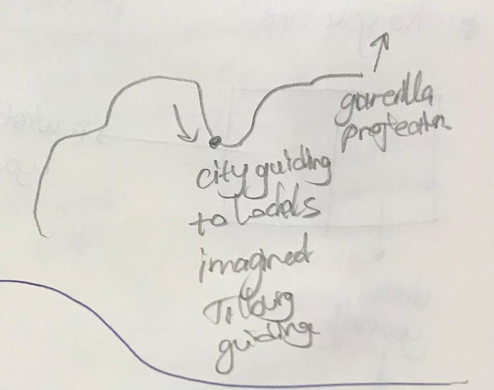 garerilla
projection
city guiding
to Locals
imagined
Tilburg
guiding